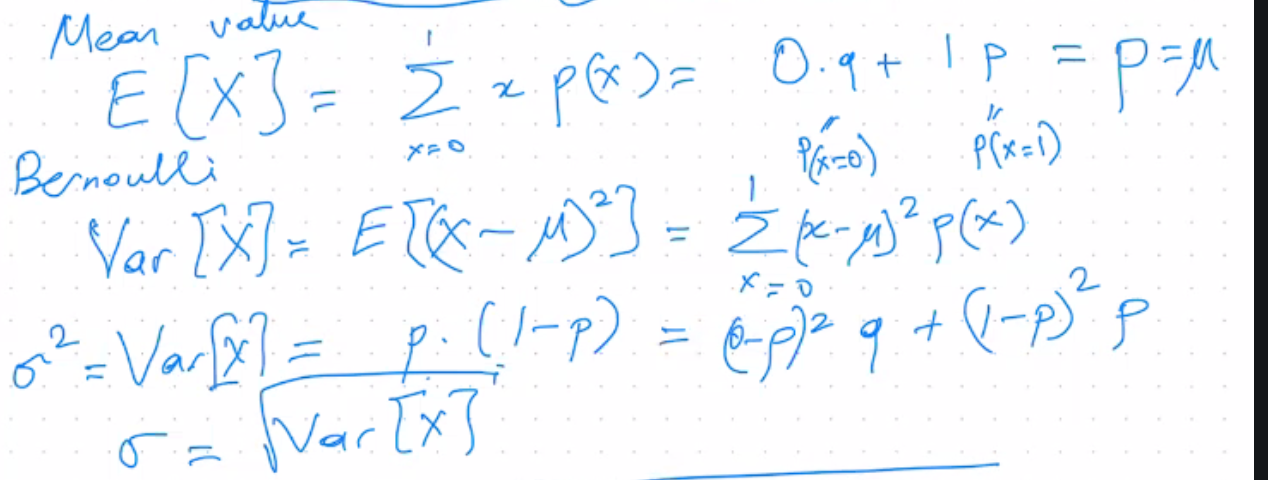 Mean value
E[X] = ∑ x p(x) = 0·q + 1 p = p = μ
1
x=0
p(x=0) p(x=1)
Bernoulli
Var[X] = E[(X-μ)²] = ∑ (x-μ)² p(x)
1
x=0
σ² = Var[X] = p·(1-p) = (0-p)² q + (1-p)² p
σ = √Var[X]